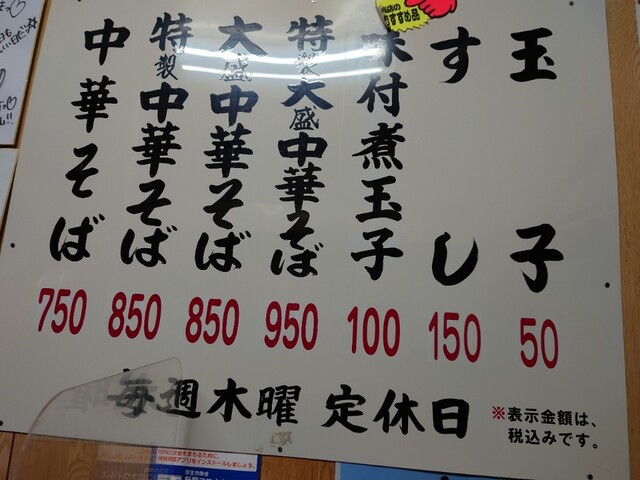 中華そば 750
特製中華そば 850
大盛中華そば 850
特製大盛中華そば 950
味付煮玉子 100
すし 150
玉子 50
毎週木曜 定休日
※表示金額は、
税込みです。
すすめ品